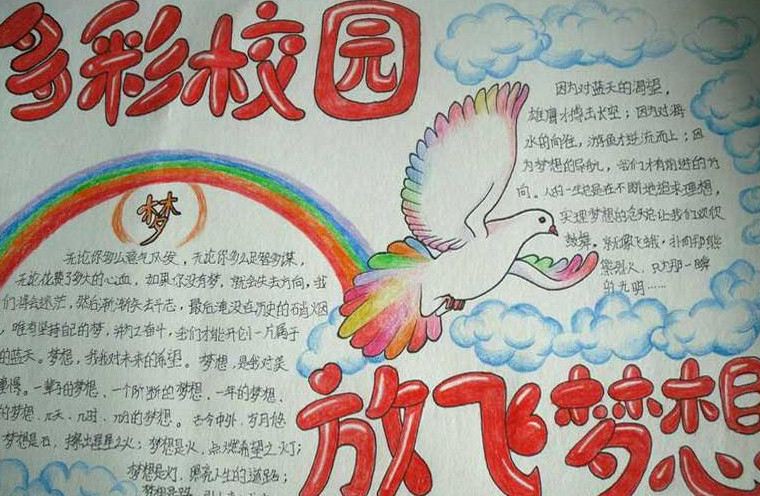 多彩校园
因为对蓝天的渴望,
雄鹰才搏击长空;因为对海
水的向往,游鱼才逆流而上;因
为梦想的导航,我们才有前进的方
向。人的一生总是在不断地追求理想,
实现梦想的念头让我们欢欣
鼓舞。就像飞蛾,扑向那熊
熊烈火,只为那一瞬
的光明……
梦
无论你多么意气风发,无论你多么足智多谋,
无论花费了多大的心血,如果你没有梦,就会失去方向,我
们将会迷茫,然后渐渐失去斗志,最后淹没在历史的硝烟
,唯有坚持自己的梦,并为之奋斗,我们才能开创一片属于
的蓝天。梦想,我指对未来的希望。梦想,是我对美
憧憬。一辈子的梦想、一个阶段的梦想、一年的梦想、
的梦想、几天、几时、几分的梦想。古今中外,岁月悠
梦想是石,擦出星星之火;梦想是火,点燃希望之灯;
梦想是灯,照亮人生的道路;
梦想是路,引
放飞梦想